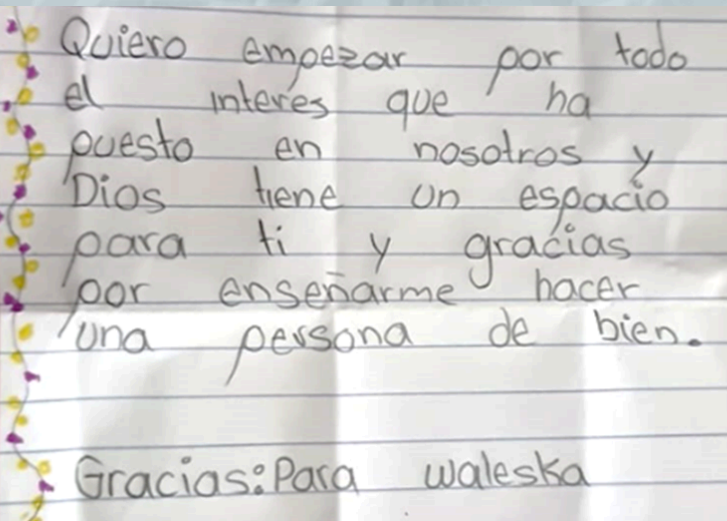 Quiero empezar por todo
el interés que ha
puesto en nosotros y
Dios tiene un espacio
para ti y gracias
por enseñarme hacer
una persona de bien.
Gracias: Para waleska